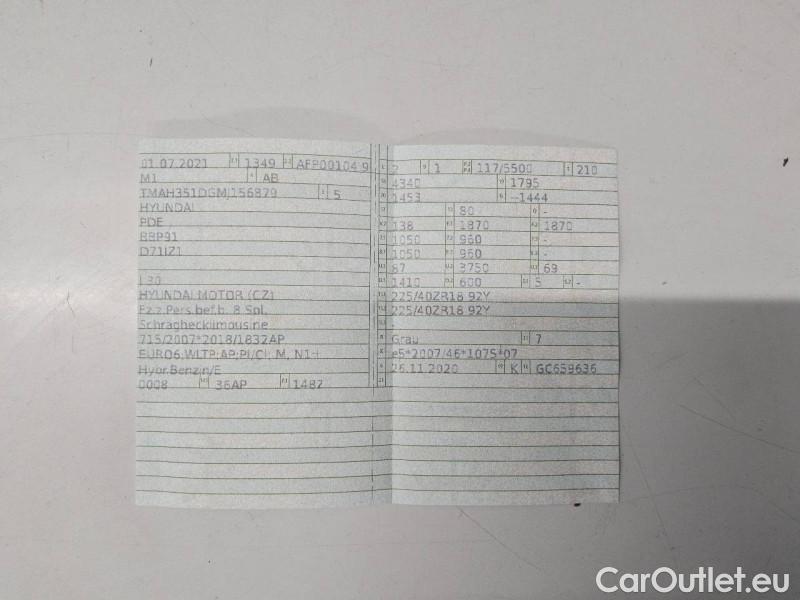 01.07.2021 1349 AFP00104 9
M1 AB
TMAH351DGMJ156879 5
HYUNDAI
PDE
BBP91
D71IZ1
I 30
HYUNDAI MOTOR (CZ)
Fz.z.Pers.bef.b. 8 Spl.
Schräghecklimousine
715/2007*2018/1832AP
EURO6;WLTP;AP;PI/CI; M, N1-I
Hybr.Benzin/E
0008 36AP 1482
2 1 117/5500 210
4340 1795
1453 --1444
80 -
138 1870 1870
1050 960 -
1050 960 -
87 3750 69
1410 600 5 -
225/40ZR18 92Y
225/40ZR18 92Y
Grau 7
e5*2007/46*1075*07
26.11.2020 K GC659636
CarOutlet.eu